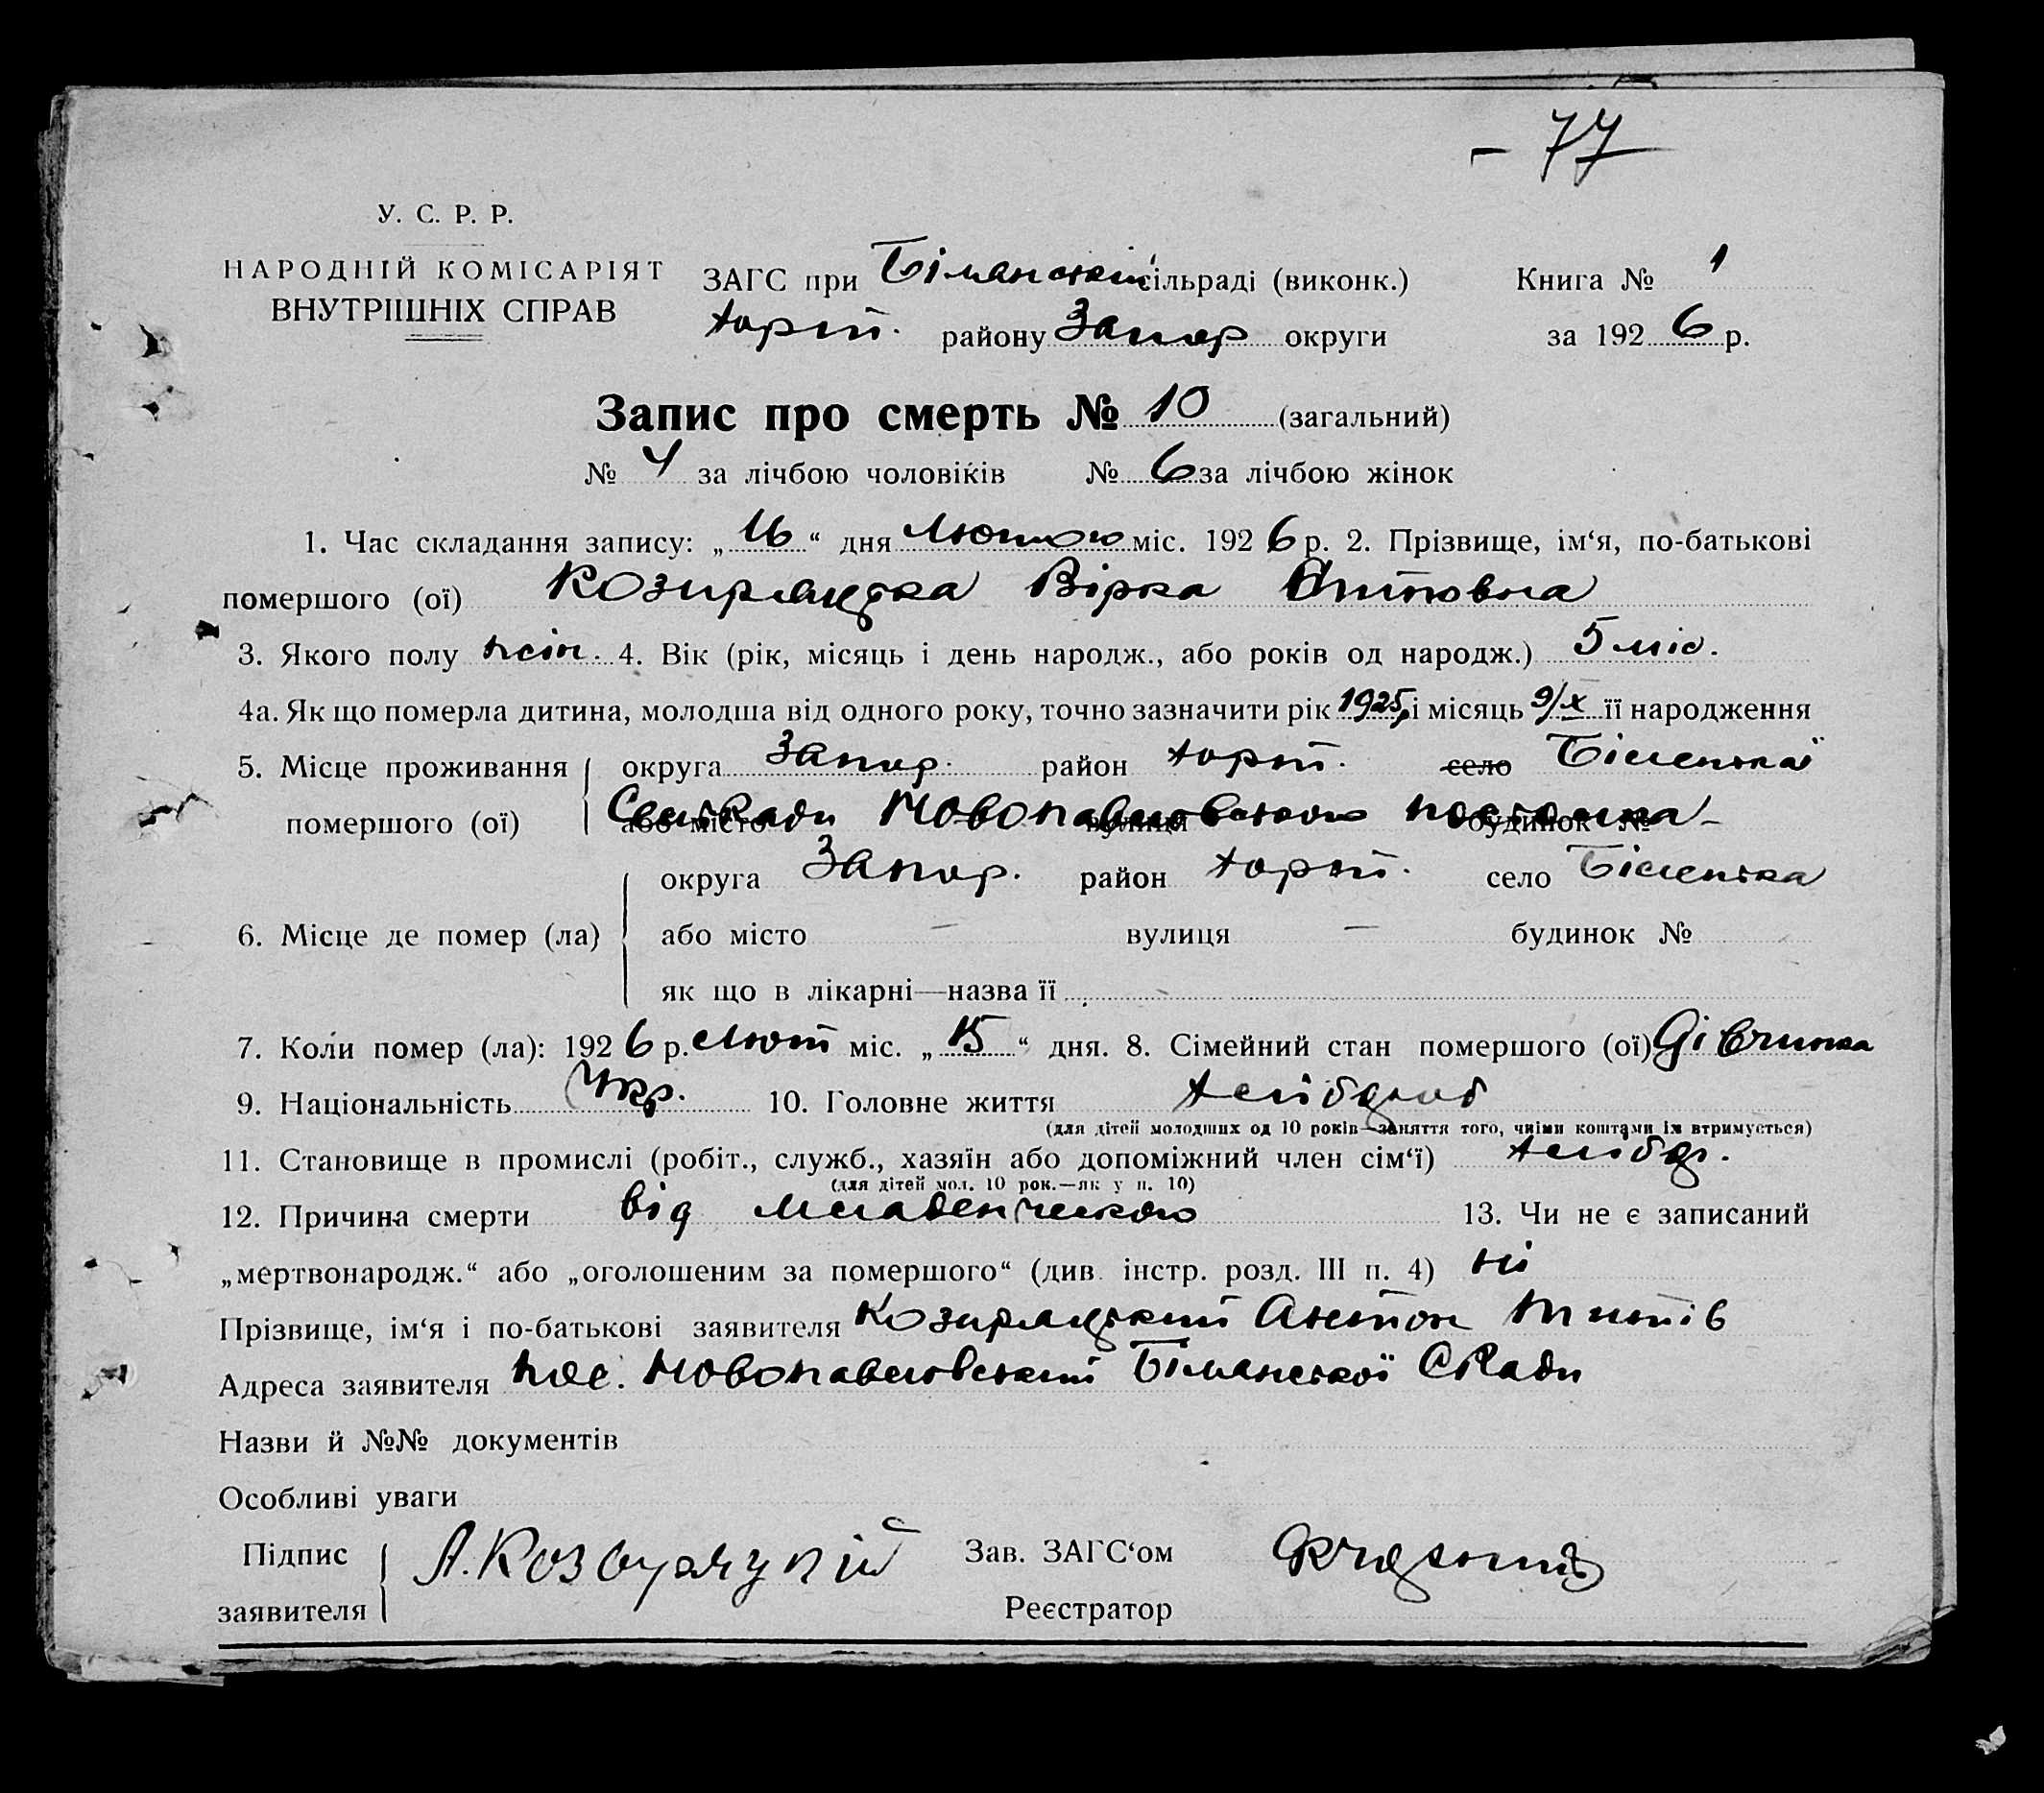 - 77
У. С. Р. Р.
НАРОДНІЙ КОМІСАРІЯТ
ВНУТРІШНІХ СПРАВ
ЗАГС при Біланській сільраді (виконк.)
Хорт. району Запор округи
Книга № 1
за 192 6 р.
Запис про смерть № 10 (загальний)
№ 4 за лічбою чоловіків № 6 за лічбою жінок
1. Час складання запису: „ 16 “ дня Лютого міс. 192 6 р. 2. Прізвище, ім‘я, по-батькові
помершого (ої) Козиряцька Вірка
3. Якого полу жін. 4. Вік (рік, місяць і день народж., або років од народж.) 5 міс.
4а. Як що померла дитина, молодша від одного року, точно зазначити рік 1925 і місяць 9/X її народження
5. Місце проживання округа Запор. район Хорт. село Біленької
помершого (ої) або місто СельРади вулиця Новопавловського будинок № посьолка
6. Місце де помер (ла) округа Запор. район Хорт. село Біленька
або місто — вулиця — будинок №
як що в лікарні—назва її
7. Коли помер (ла): 192 6 р. Лют міс. „ 15 “ дня. 8. Сімейний стан помершого (ої) Дівчинка
9. Національність Укр. 10. Головне життя Хлібороб
(для дітей молодших од 10 років—заняття того, чиїми коштами їх втримується)
11. Становище в промислі (робіт., служб., хазяїн або допоміжний член сім‘ї)
(для дітей мол. 10 рок.—як у п. 10)
12. Причина смерти від младенческого 13. Чи не є записаний
„мертвонародж.“ або „оголошеним за помершого“ (див. інстр. розд. III п. 4) ні
Прізвище, ім‘я і по-батькові заявителя Козиряцький Антон Титів
Адреса заявителя пос. Новопавловський Біланської СРади
Назви й №№ документів
Особливі уваги
Підпис заявителя А. Козиряцкій
Зав. ЗАГС‘ом
Реєстратор